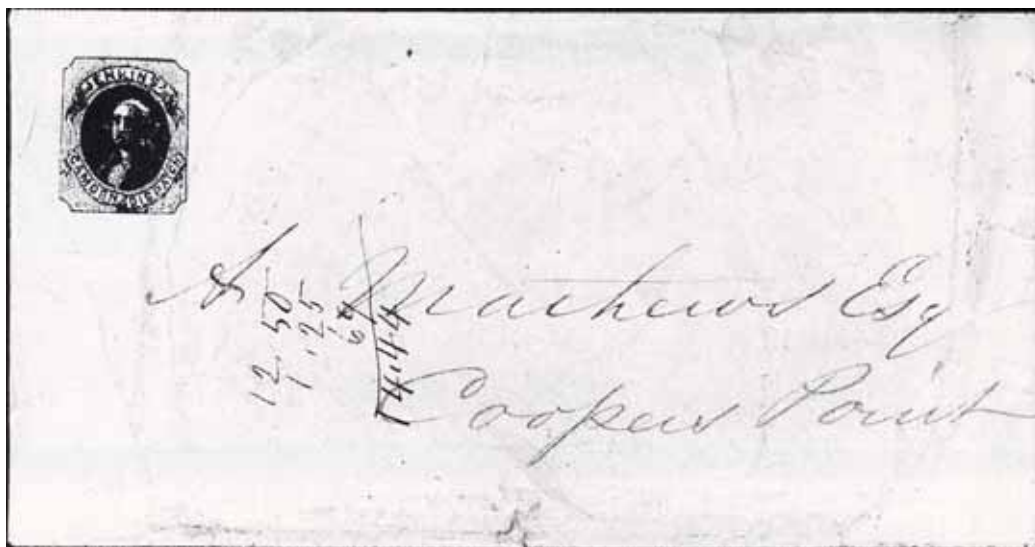 JENKINS'
CAMDEN DISPATCH
A Mathews Esq
Coopers Point
12.50
1.25
69
14.44